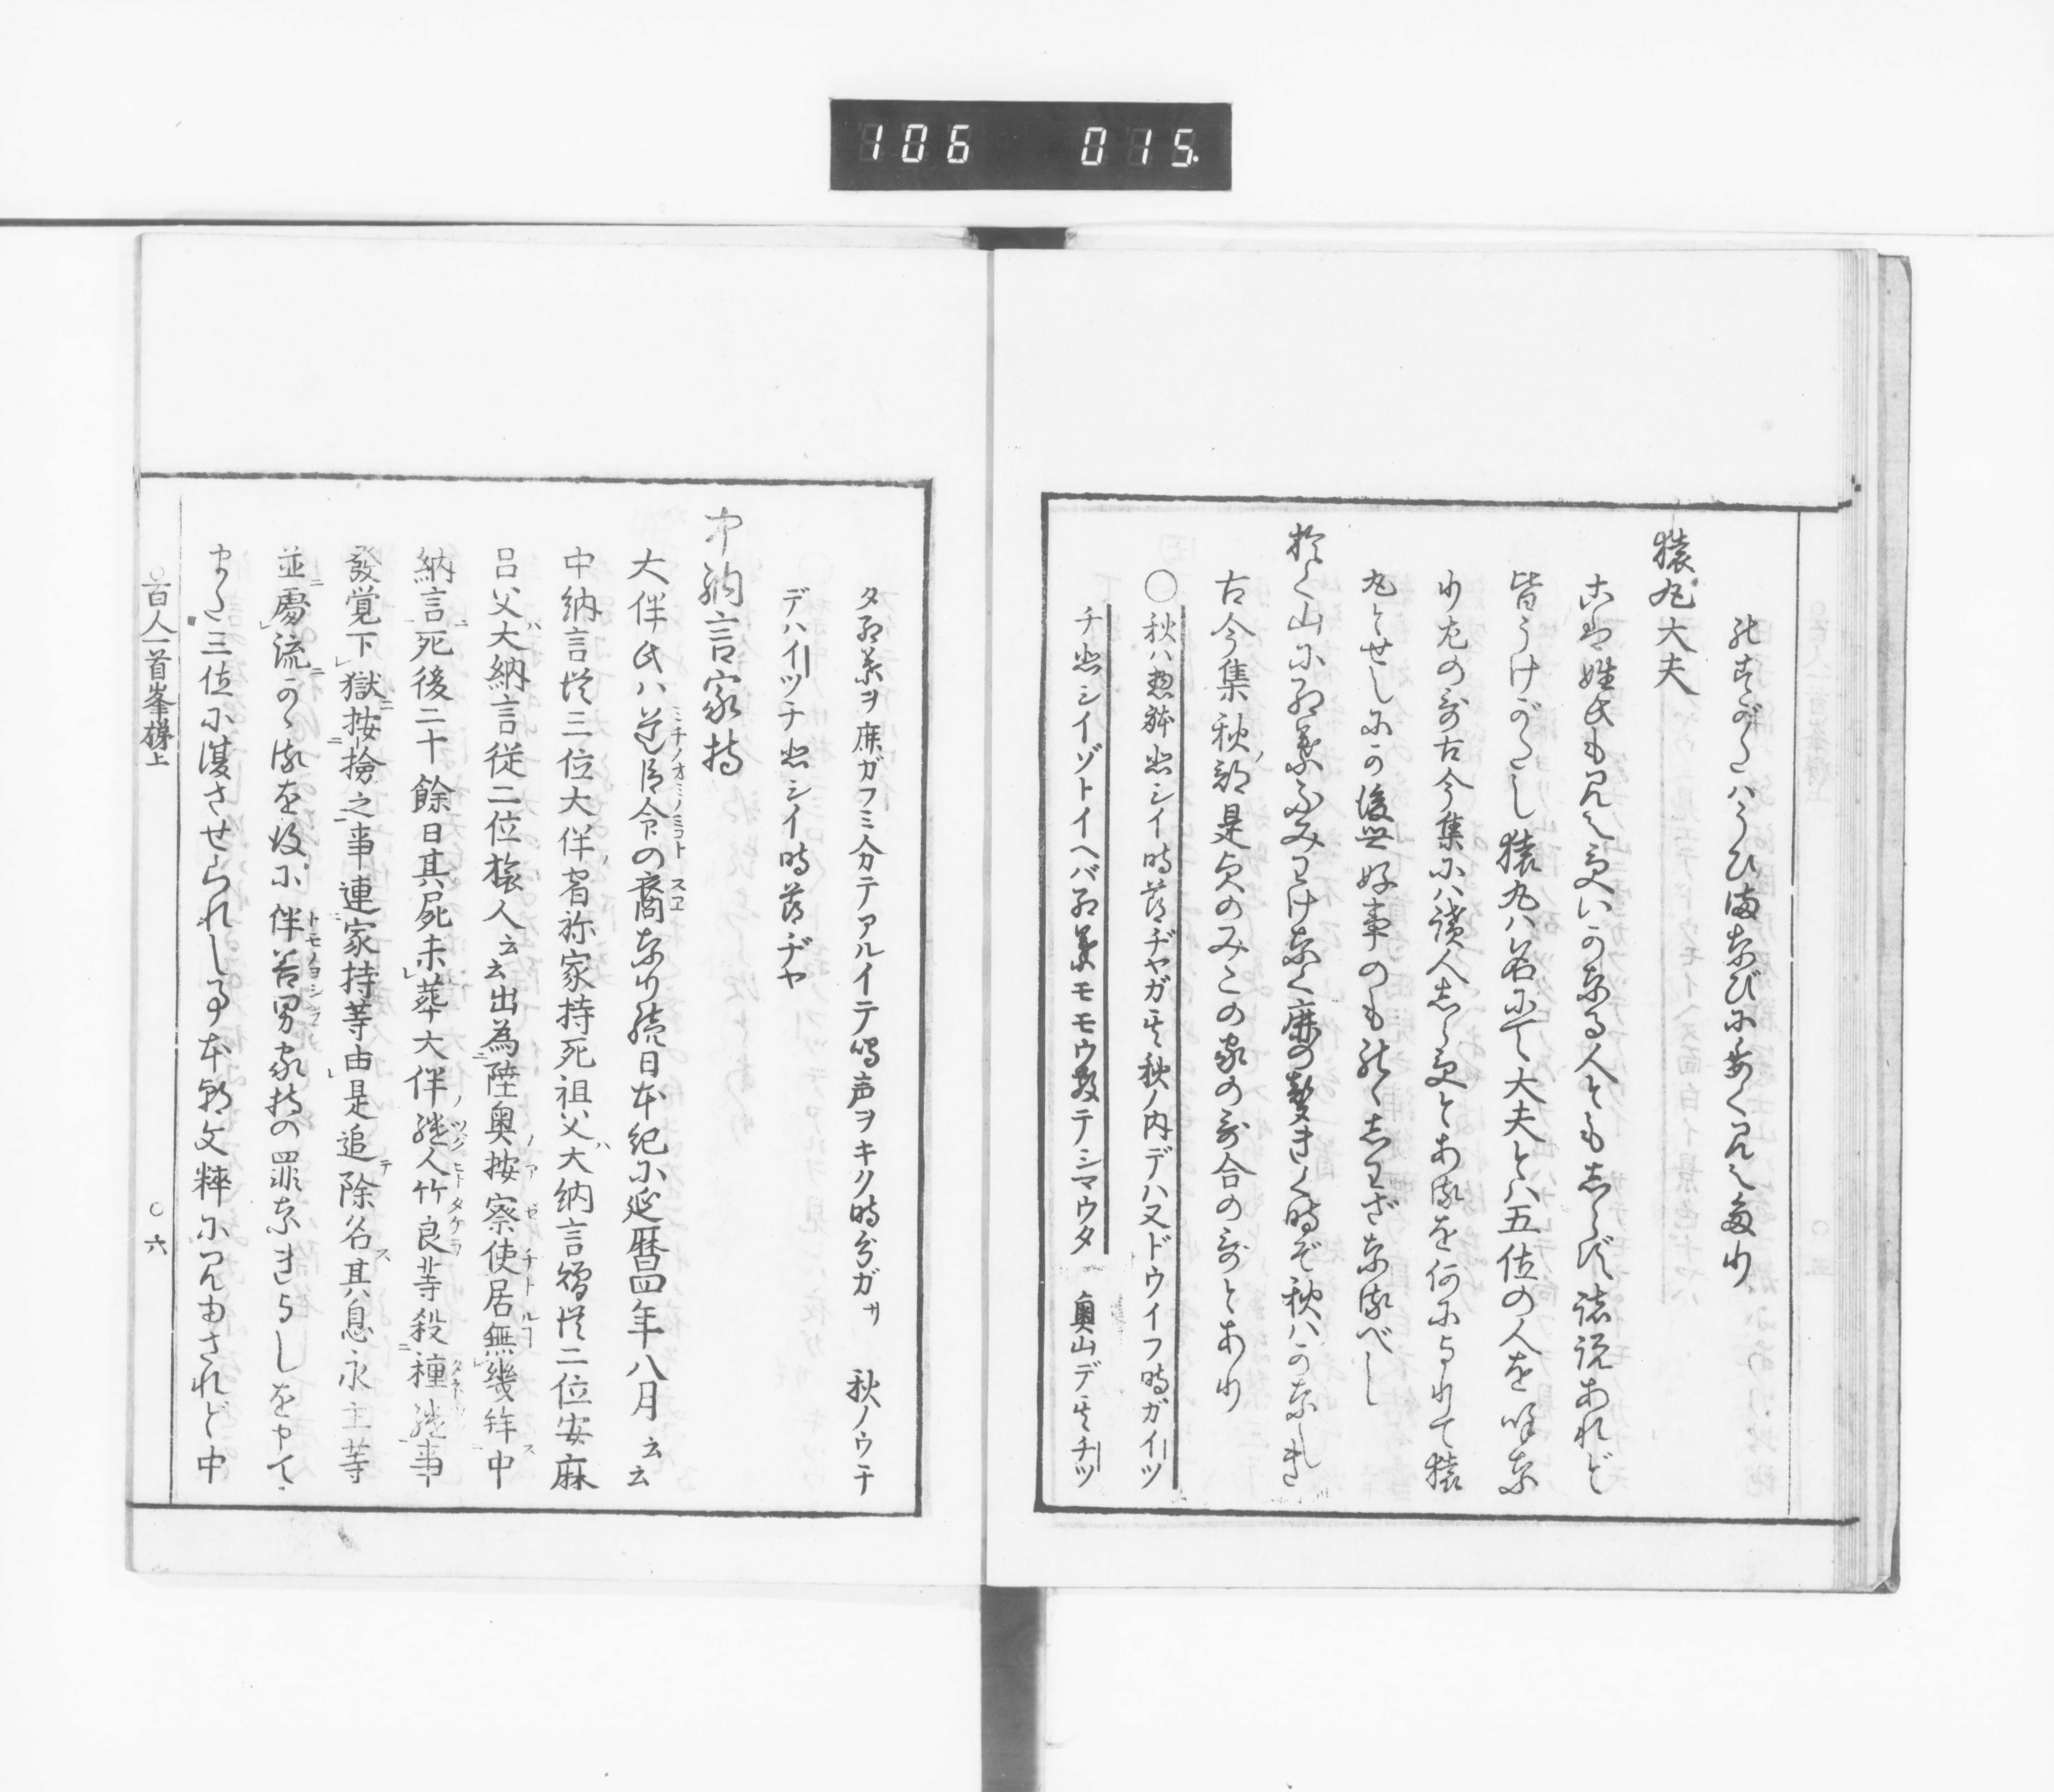 106 015
猿丸大夫
こは姓氏も見えず又いかなる人とも志らず諸説あれど
皆うけがたし猿丸ハ名にて大夫とハ五位の人を呼な
り右の哥古今集にハ讀人志らずとあるを何によりて猿
丸とせしにか後世好事のものゝ志わざなるべし
おく山に紅葉ふみわけなく鹿の聲きく時ぞ秋ハかなしき
古今集秋ノ部是貞のみこの家の哥合の哥とあり
○秋ハ惣躰悲シイ時節ヂヤガ其秋ノ内デハ又ドウイフ時ガイツ
チ悲シイゾトイヘバ紅葉モモウ散テシマウタ 奥山デ其チツ
タ紅葉ヲ鹿ガフミ分テアルイテ鳴声ヲキク時分ガサ 秋ノウチ
デハイツチ悲シイ時節ヂヤ
中納言家持
大伴氏ハ道臣命の裔なり續日本紀に延暦四年八月云云
中納言從三位大伴宿祢家持死祖父大納言贈從二位安麻
呂父大納言従二位旅人云云出為陸奥按察使居無幾拜中
納言死後二十餘日其屍未葬大伴継人竹良等殺種継事
發覚下獄按撿之事連家持等由是追除名其息永主等
並處流かゝるを後に伴善男家持の罪なきよしを申て
また三位に復させられし事本朝文粹に見ゆされど中
○百人一首峯梯上 ○六